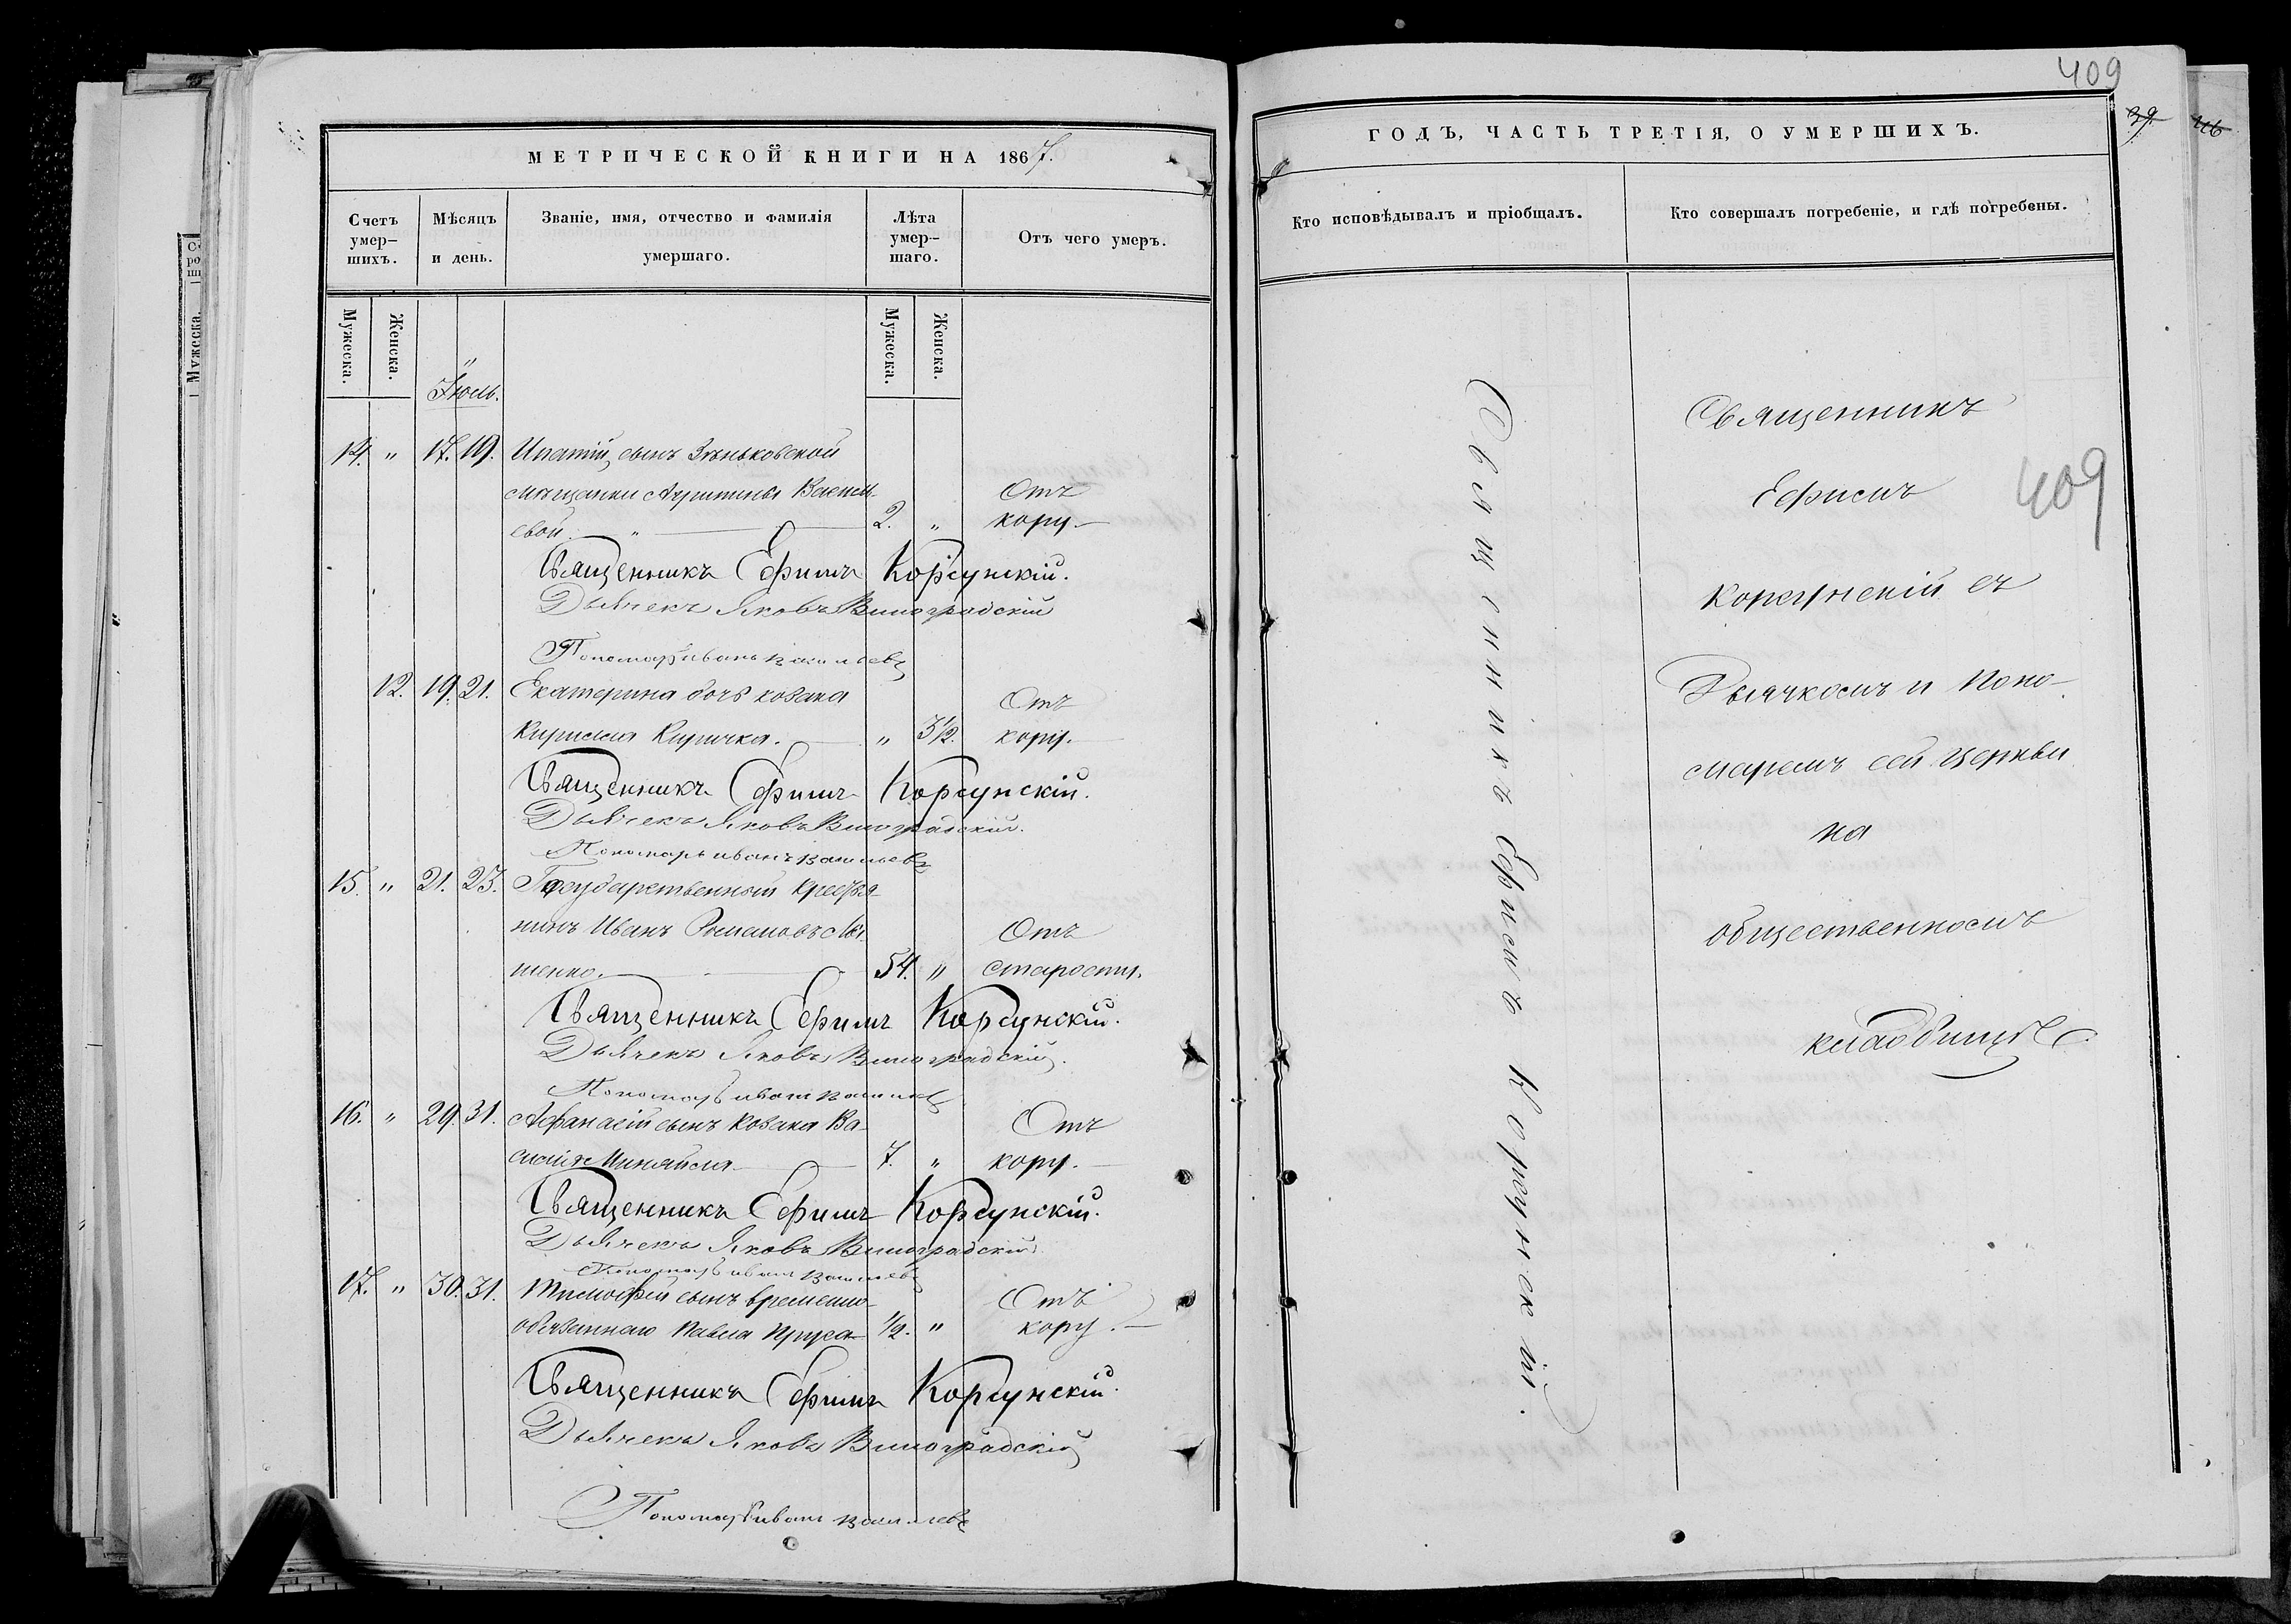 МЕТРИЧЕСКОЙ КНИГИ НА 1867.
Счетъ умер-шихъ.
Мѣсяцъ и день.
Званіе, имя, отчество и фамилія умершаго.
Лѣта умер-шаго.
Отъ чего умеръ.
Мужеска.
Женска.
Мужеска.
Женска.
Іюль.
14. " 17. 19. Ипатій, сынъ Зѣньковской
мѣщанки Агриппины Василь- Отъ
евой. " 2. " кору.
Священникъ Ефимъ Корсунскій.
Дьячекъ Яковъ Виноградскій
Пономарь Иванъ Васильевъ
12. 19. 21. Екатерина дочь козака Отъ
Кирилла Киричка. " 3 1/2. кору.
Священникъ Ефимъ Корсунскій.
Дьячекъ Яковъ Виноградскій.
Пономарь Иванъ Васильевъ
15. " 21. 23. Государственный крестья-
нинъ Иванъ Романовъ Отъ
шенко. 54. " старости.
Священникъ Ефимъ Корсунскій.
Дьячекъ Яковъ Виноградскій.
Пономарь Иванъ Васильевъ
16. " 29. 31. Афанасій сынъ козака Ва- Отъ
силія 7. " кору.
Священникъ Ефимъ Корсунскій.
Дьячекъ Яковъ Виноградскій
Пономарь Иванъ Васильевъ
17. " 30. 31. Тимофей сынъ временно- Отъ
обязаннаго Павла Пруса 1/2. " кору.
Священникъ Ефимъ Корсунскій.
Дьячекъ Яковъ Виноградскій
Пономарь Иванъ Васильевъ
409
39
ГОДЪ, ЧАСТЬ ТРЕТІЯ, О УМЕРШИХЪ.
Кто исповѣдывалъ и пріобщалъ.
Кто совершалъ погребеніе, и гдѣ погребены.
Священникъ Ефимъ Корсунскій.
Священникъ
Ефимъ
409
Корсунскій съ
Дьячкомъ и Поно-
маремъ сей церкви
на
общественномъ
кладбищѣ.